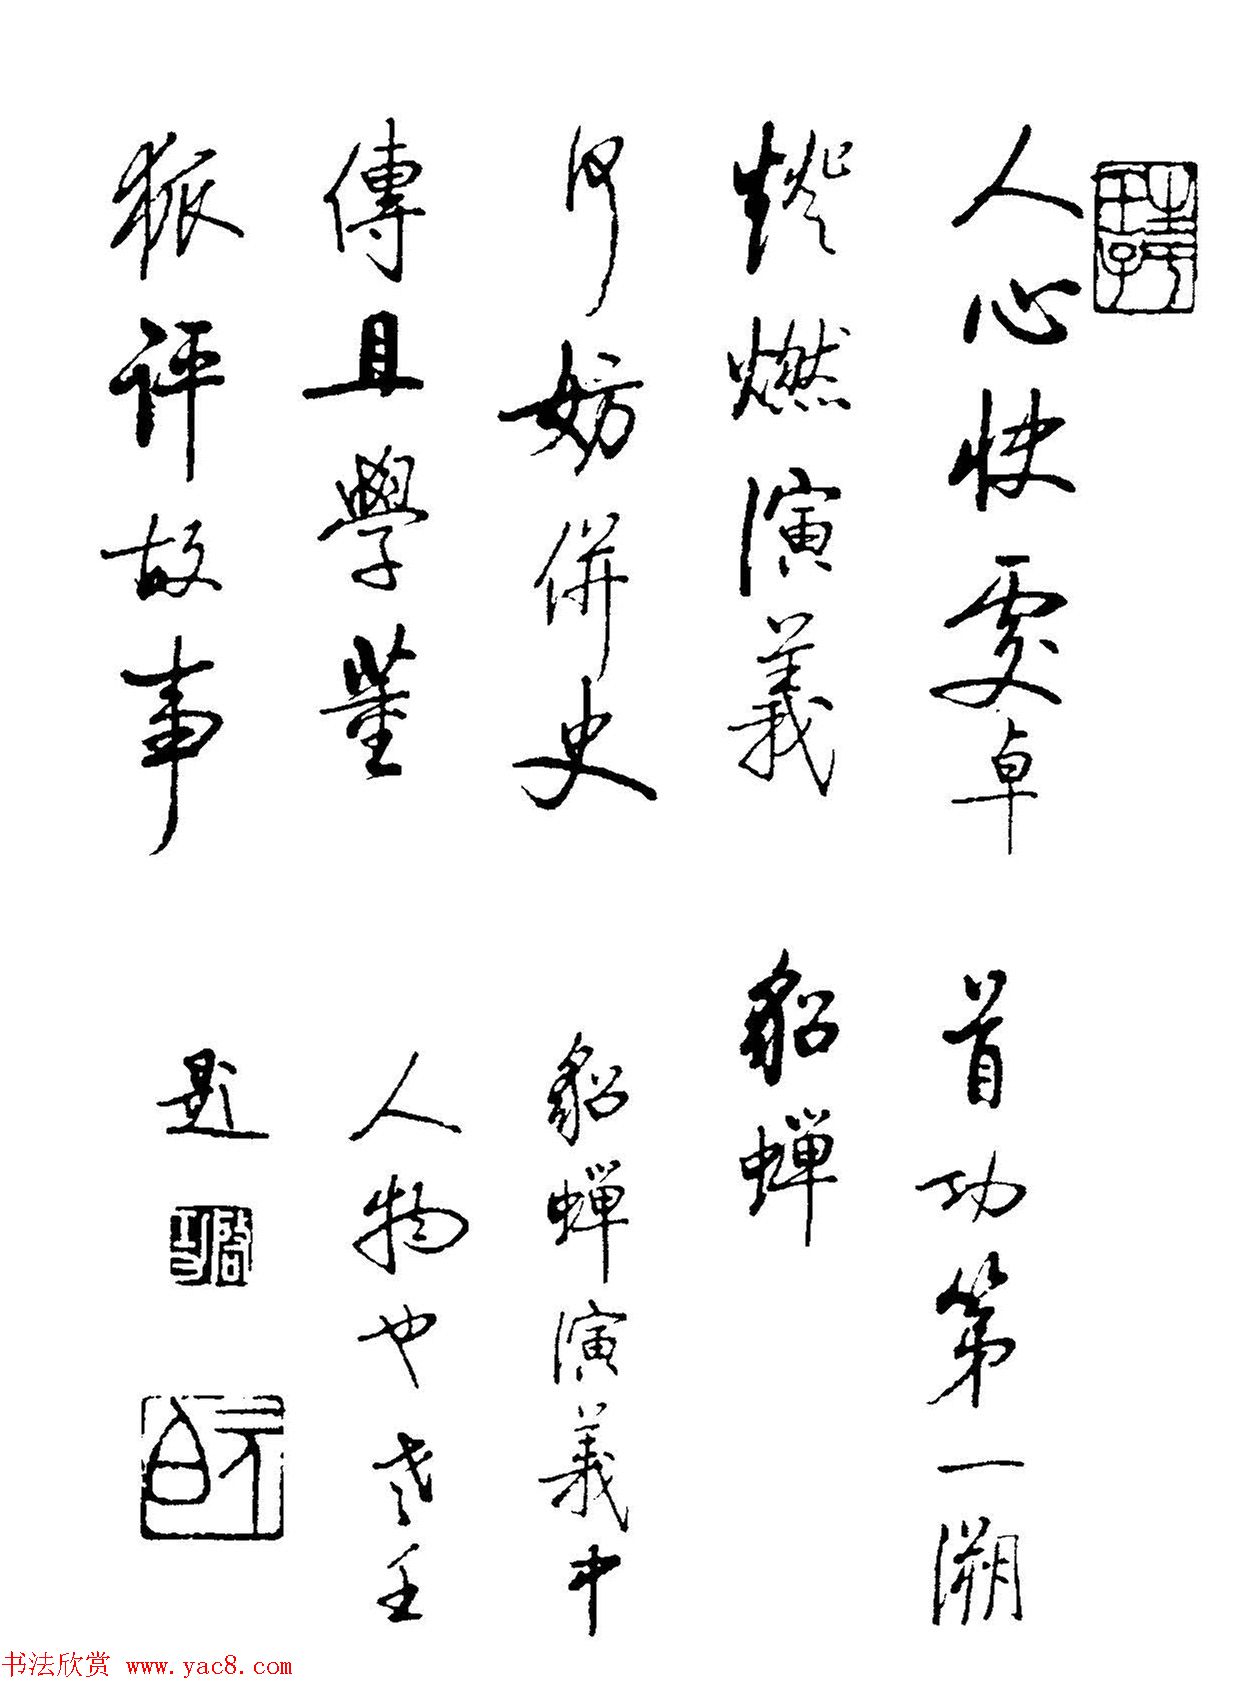 人心快處卓
燈燃演義
何妨併史
傳且學董
狐評故事
首功第一溯
貂蟬
貂蟬演義中
人物也
題
啓功
元白
书法欣赏 www.yac8.com